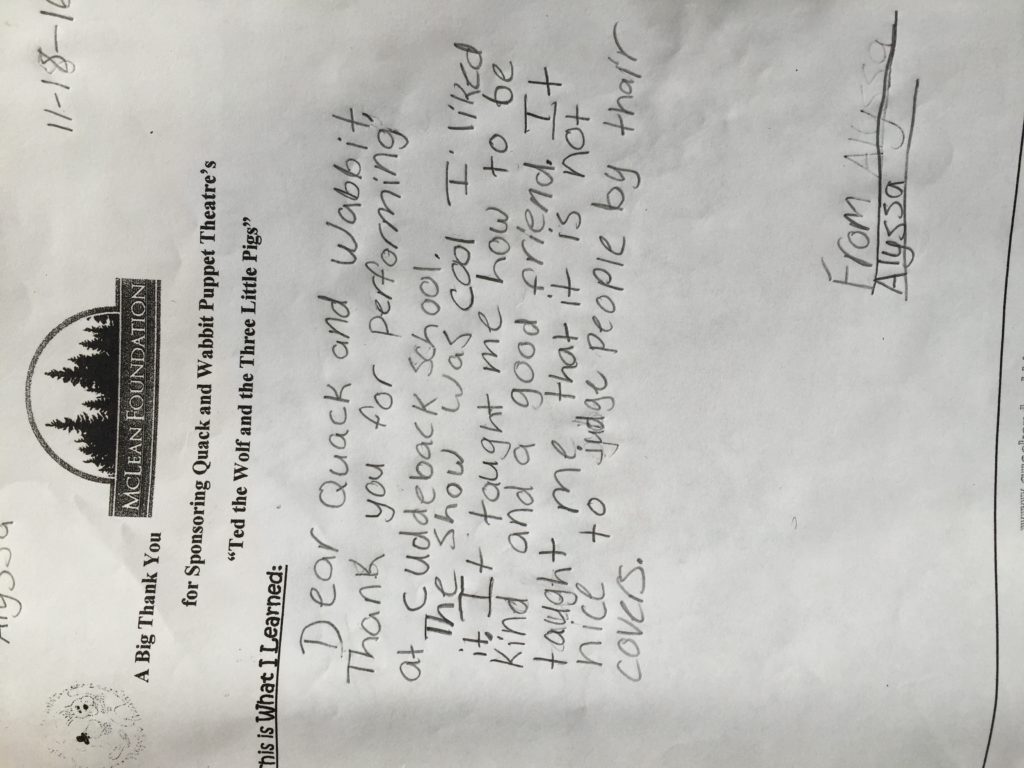 Alyssa
11-18-16
McLean Foundation
A Big Thank You
for Sponsoring Quack and Wabbit Puppet Theatre's
“Ted the Wolf and the Three Little Pigs”
This is What I Learned:
Dear Quack and Wabbit,
Thank you for performing
at Cuddeback School.
The show was cool I liked
it, It taught me how to be
kind and a good friend. It
taught me that it is not
nice to judge people by thair
covers.
From Alyssa
Alyssa